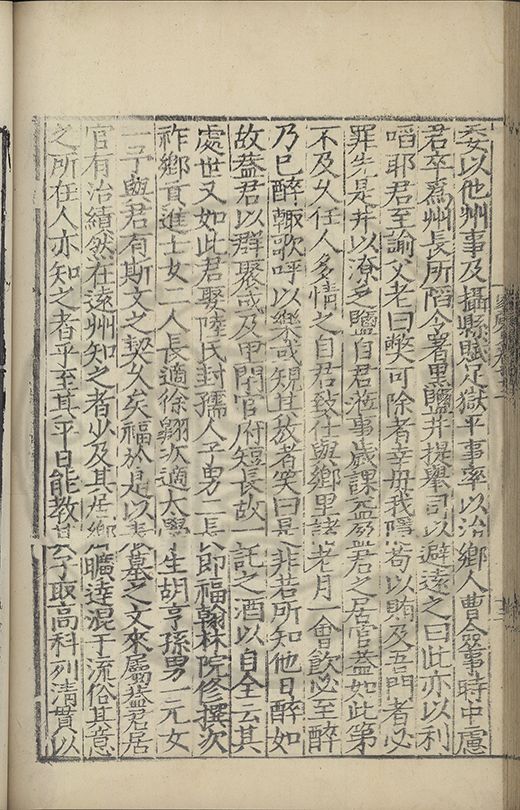 委以他州事及攝縣賦足獄平事率以治鄉人曹僉第時中慮
君卒爲州長所䧟令署黒鹽井提舉司以避逺之曰此亦以利
啗耶君至諭父老曰弊可除者幸毋我隱苟以賄及吾門者必
罪先是井以潦多鹽自君涖事歲課益盈君之居官蓋如此第
不及乆任人多惜之自君致仕與鄉里諸老月一會飲必至醉
乃已醉輙歌呼以樂或覘其故者笑曰是非若所知他日醉如
故葢君以群聚或及閈官府短長故一託之酒以自全云其
處世又如此君娶陸氏封孺人子男二長即福翰林院修撰次
祚鄉貢進士女二人長適徐翱次適太學生胡亨孫男一元女
一予與君有斯文之契乆矣福於是以墓之文來屬葢君居
官有治績然在逺州知之者少及其居鄉曠逹混于流俗其意
之所在人亦知之者乎至其平日能教其子取高科列清貫以